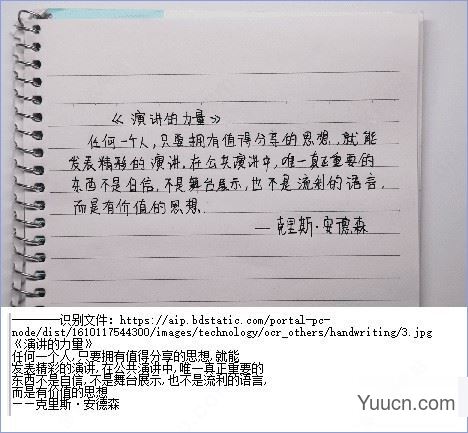 《演讲的力量》
任何一个人,只要拥有值得分享的思想,就能
发表精彩的演讲.在公共演讲中,唯一真正重要的
东西不是自信,不是舞台展示,也不是流利的语言,
而是有价值的思想.
——克里斯·安德森
————识别文件: https://aip.bdstatic.com/portal-pc-
node/dist/1610117544300/images/technology/ocr_others/handwriting/3.jpg
《演讲的力量》
任何一个人,只要拥有值得分享的思想,就能
发表精彩的演讲,在公共演讲中,唯一真正重要的
东西不是自信,不是舞台展示,也不是流利的语言,
而是有价值的思想
——克里斯·安德森
Yuucn.com